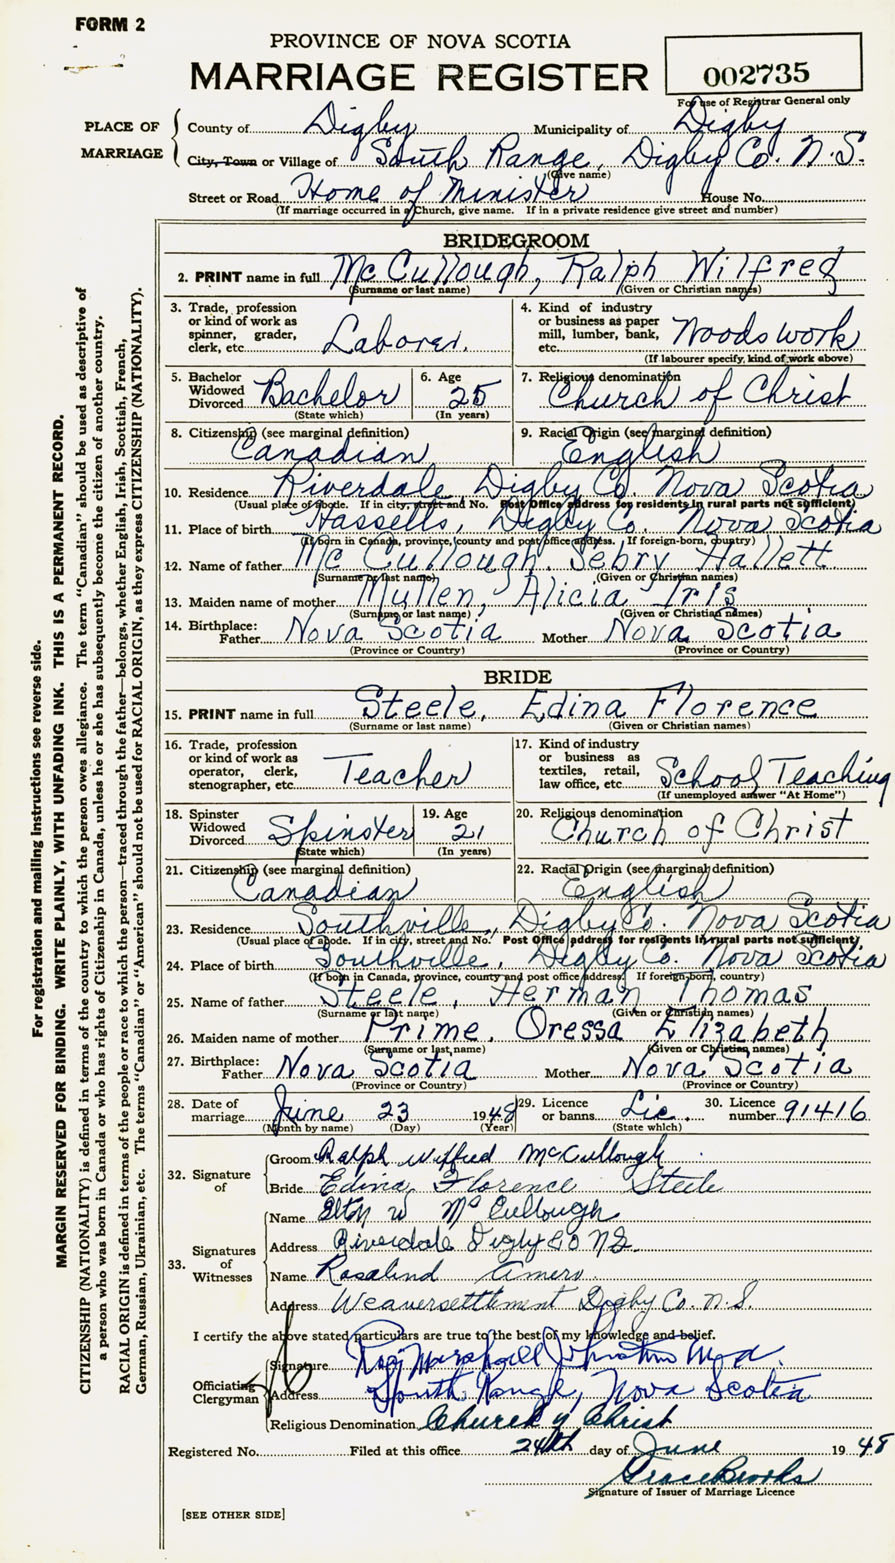 FORM 2
PROVINCE OF NOVA SCOTIA
MARRIAGE REGISTER
002735
For use of Registrar General only
PLACE OF MARRIAGE
County of Digby Municipality of Digby
City, Town or Village of South Range, Digby Co. N.S.
(Give name)
Street or Road Home of Minister House No.
(If marriage occurred in a Church, give name. If in a private residence give street and number)
BRIDEGROOM
2. PRINT name in full McCullough, Ralph Wilfred
(Surname or last name) (Given or Christian names)
3. Trade, profession or kind of work as spinner, grader, clerk, etc. Laborer.
4. Kind of industry or business as paper mill, lumber, bank, etc. Woods work
(If labourer specify, kind of work above)
5. Bachelor Widowed Divorced Bachelor
(State which)
6. Age 25
(In years)
7. Religious denomination Church of Christ
8. Citizenship (see marginal definition) Canadian
9. Racial Origin (see marginal definition) English
10. Residence Riverdale Digby Co. Nova Scotia
(Usual place of abode. If in city, street and No. Post Office address for residents in rural parts not sufficient)
11. Place of birth Hassells, Digby Co. Nova Scotia
(If born in Canada, province, county and post office address. If foreign-born, country)
12. Name of father McCullough. Sebry Hallett
(Surname or last name) (Given or Christian names)
13. Maiden name of mother Mullen, Alicia Iris
(Surname or last name) (Given or Christian names)
14. Birthplace: Father Nova Scotia Mother Nova Scotia
(Province or Country) (Province or Country)
BRIDE
15. PRINT name in full Steele, Edina Florence
(Surname or last name) (Given or Christian names)
16. Trade, profession or kind of work as operator, clerk, stenographer, etc. Teacher
17. Kind of industry or business as textiles, retail, law office, etc. School Teaching
(If unemployed answer "At Home")
18. Spinster Widowed Divorced Spinster
(State which)
19. Age 21
(In years)
20. Religious denomination Church of Christ
21. Citizenship (see marginal definition) Canadian
22. Racial Origin (see marginal definition) English
23. Residence Southville, Digby Co. Nova Scotia
(Usual place of abode. If in city, street and No. Post Office address for residents in rural parts not sufficient).
24. Place of birth Southville, Digby Co. Nova Scotia
(If born in Canada, province, county and post office address. If foreign-born, country)
25. Name of father Steele, Herman Thomas
(Surname or last name) (Given or Christian names)
26. Maiden name of mother Prime, Oressa Elizabeth
(Surname or last name) (Given or Christian names)
27. Birthplace: Father Nova Scotia Mother Nova Scotia
(Province or Country) (Province or Country)
28. Date of marriage June 23 1948
(Month by name) (Day) (Year)
29. Licence or banns. Lic.
(State which)
30. Licence number 91416
32. Signature of
Groom Ralph Wilfred McCullough
Bride Edina Florence Steele
33. Signatures of Witnesses
Name Elton W McCullough
Address Riverdale Digby Co NS.
Name Rosalind Amero
Address Weaversettlement Digby Co. N.S.
I certify the above stated particulars are true to the best of my knowledge and belief.
Officiating Clergyman
Signature Marshall Johnston
Address South Range, Nova Scotia
Religious Denomination Church of Christ
Registered No. Filed at this office 24th day of June 1948
Grace Brooks
Signature of Issuer of Marriage Licence
[SEE OTHER SIDE]
For registration and mailing instructions see reverse side.
MARGIN RESERVED FOR BINDING. WRITE PLAINLY, WITH UNFADING INK. THIS IS A PERMANENT RECORD.
CITIZENSHIP (NATIONALITY) is defined in terms of the country to which the person owes allegiance. The term "Canadian" should be used as descriptive of
a person who was born in Canada or who has rights of Citizenship in Canada, unless he or she has subsequently become the citizen of another country.
RACIAL ORIGIN is defined in terms of the people or race to which the person—traced through the father—belongs, whether English, Irish, Scottish, French,
German, Russian, Ukrainian, etc. The terms "Canadian" or "American" should not be used for RACIAL ORIGIN, as they express CITIZENSHIP (NATIONALITY).